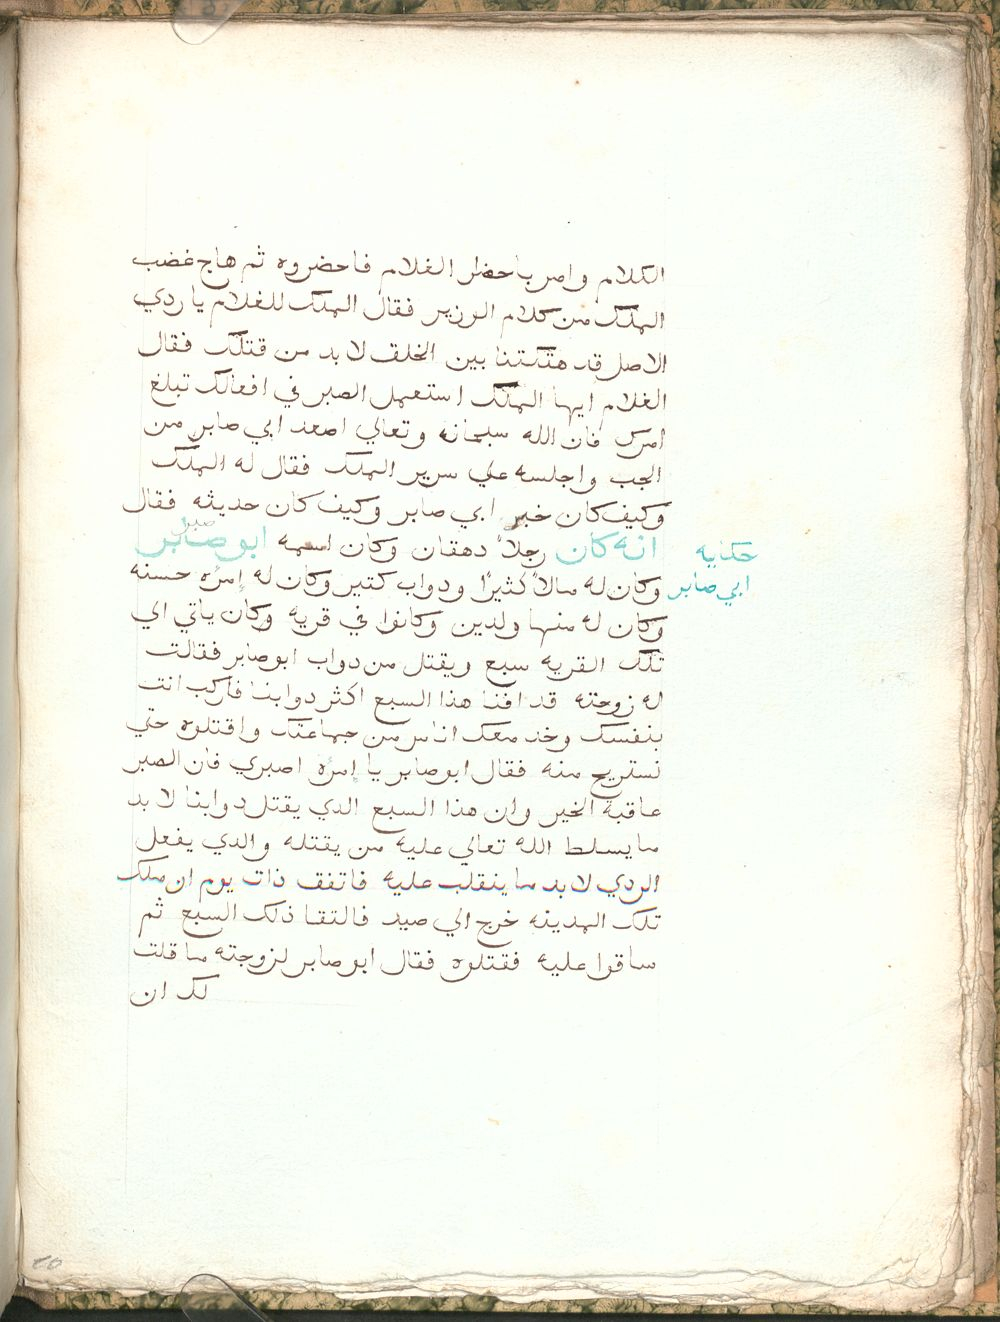 الكلام وامر باحظار الغلام فاحضروه ثم هاج غضب
الملك من كلام الوزير فقال الملك للغلام يا ردي
الاصل قد هتكتنا بين الخلق لا بد من قتلك فقال
الغلام ايها الملك استعمل الصبر في افعالك تبلغ
امرك فان الله سبحانه وتعالي اصعد ابي صابر من
الجب واجلسه علي سرير الملك فقال له الملك
وكيف كان خبر ابي صابر وكيف كان حديثه فقال
صبر
حكايه
ابي صابر
انه كان رجلاً دهقان وكان اسمه ابو صابر
وكان له مالاً كثيرًا ودواب كتير وكان له إمرُه حسنه
وكان له منها ولدين وكانوا في قريه وكان ياتي الي
تلك القريه سبع ويقتل من دواب ابو صابر فقالت
له زوجته قد افنا هذا السبع اكثر دوابنا فاركب انت
بنفسك وخد معك اناس من جماعتك واقتلوه حتي
نستريح منه فقال ابو صابر يا إمرُه اصبري فان الصبر
عاقبة الخير وان هذا السبع الدي يقتل دوابنا لا بد
ما يسلط الله تعالي عليه من يقتله والدي يفعل
الردي لا بد ما ينقلب عليه فاتفق ذات يوم ان ملك
تلك المدينه خرج الي صيد فالتقا ذلك السبع ثم
ساقوا عليه فقتلوه فقال ابو صابر لزوجته ما قلت
لك ان